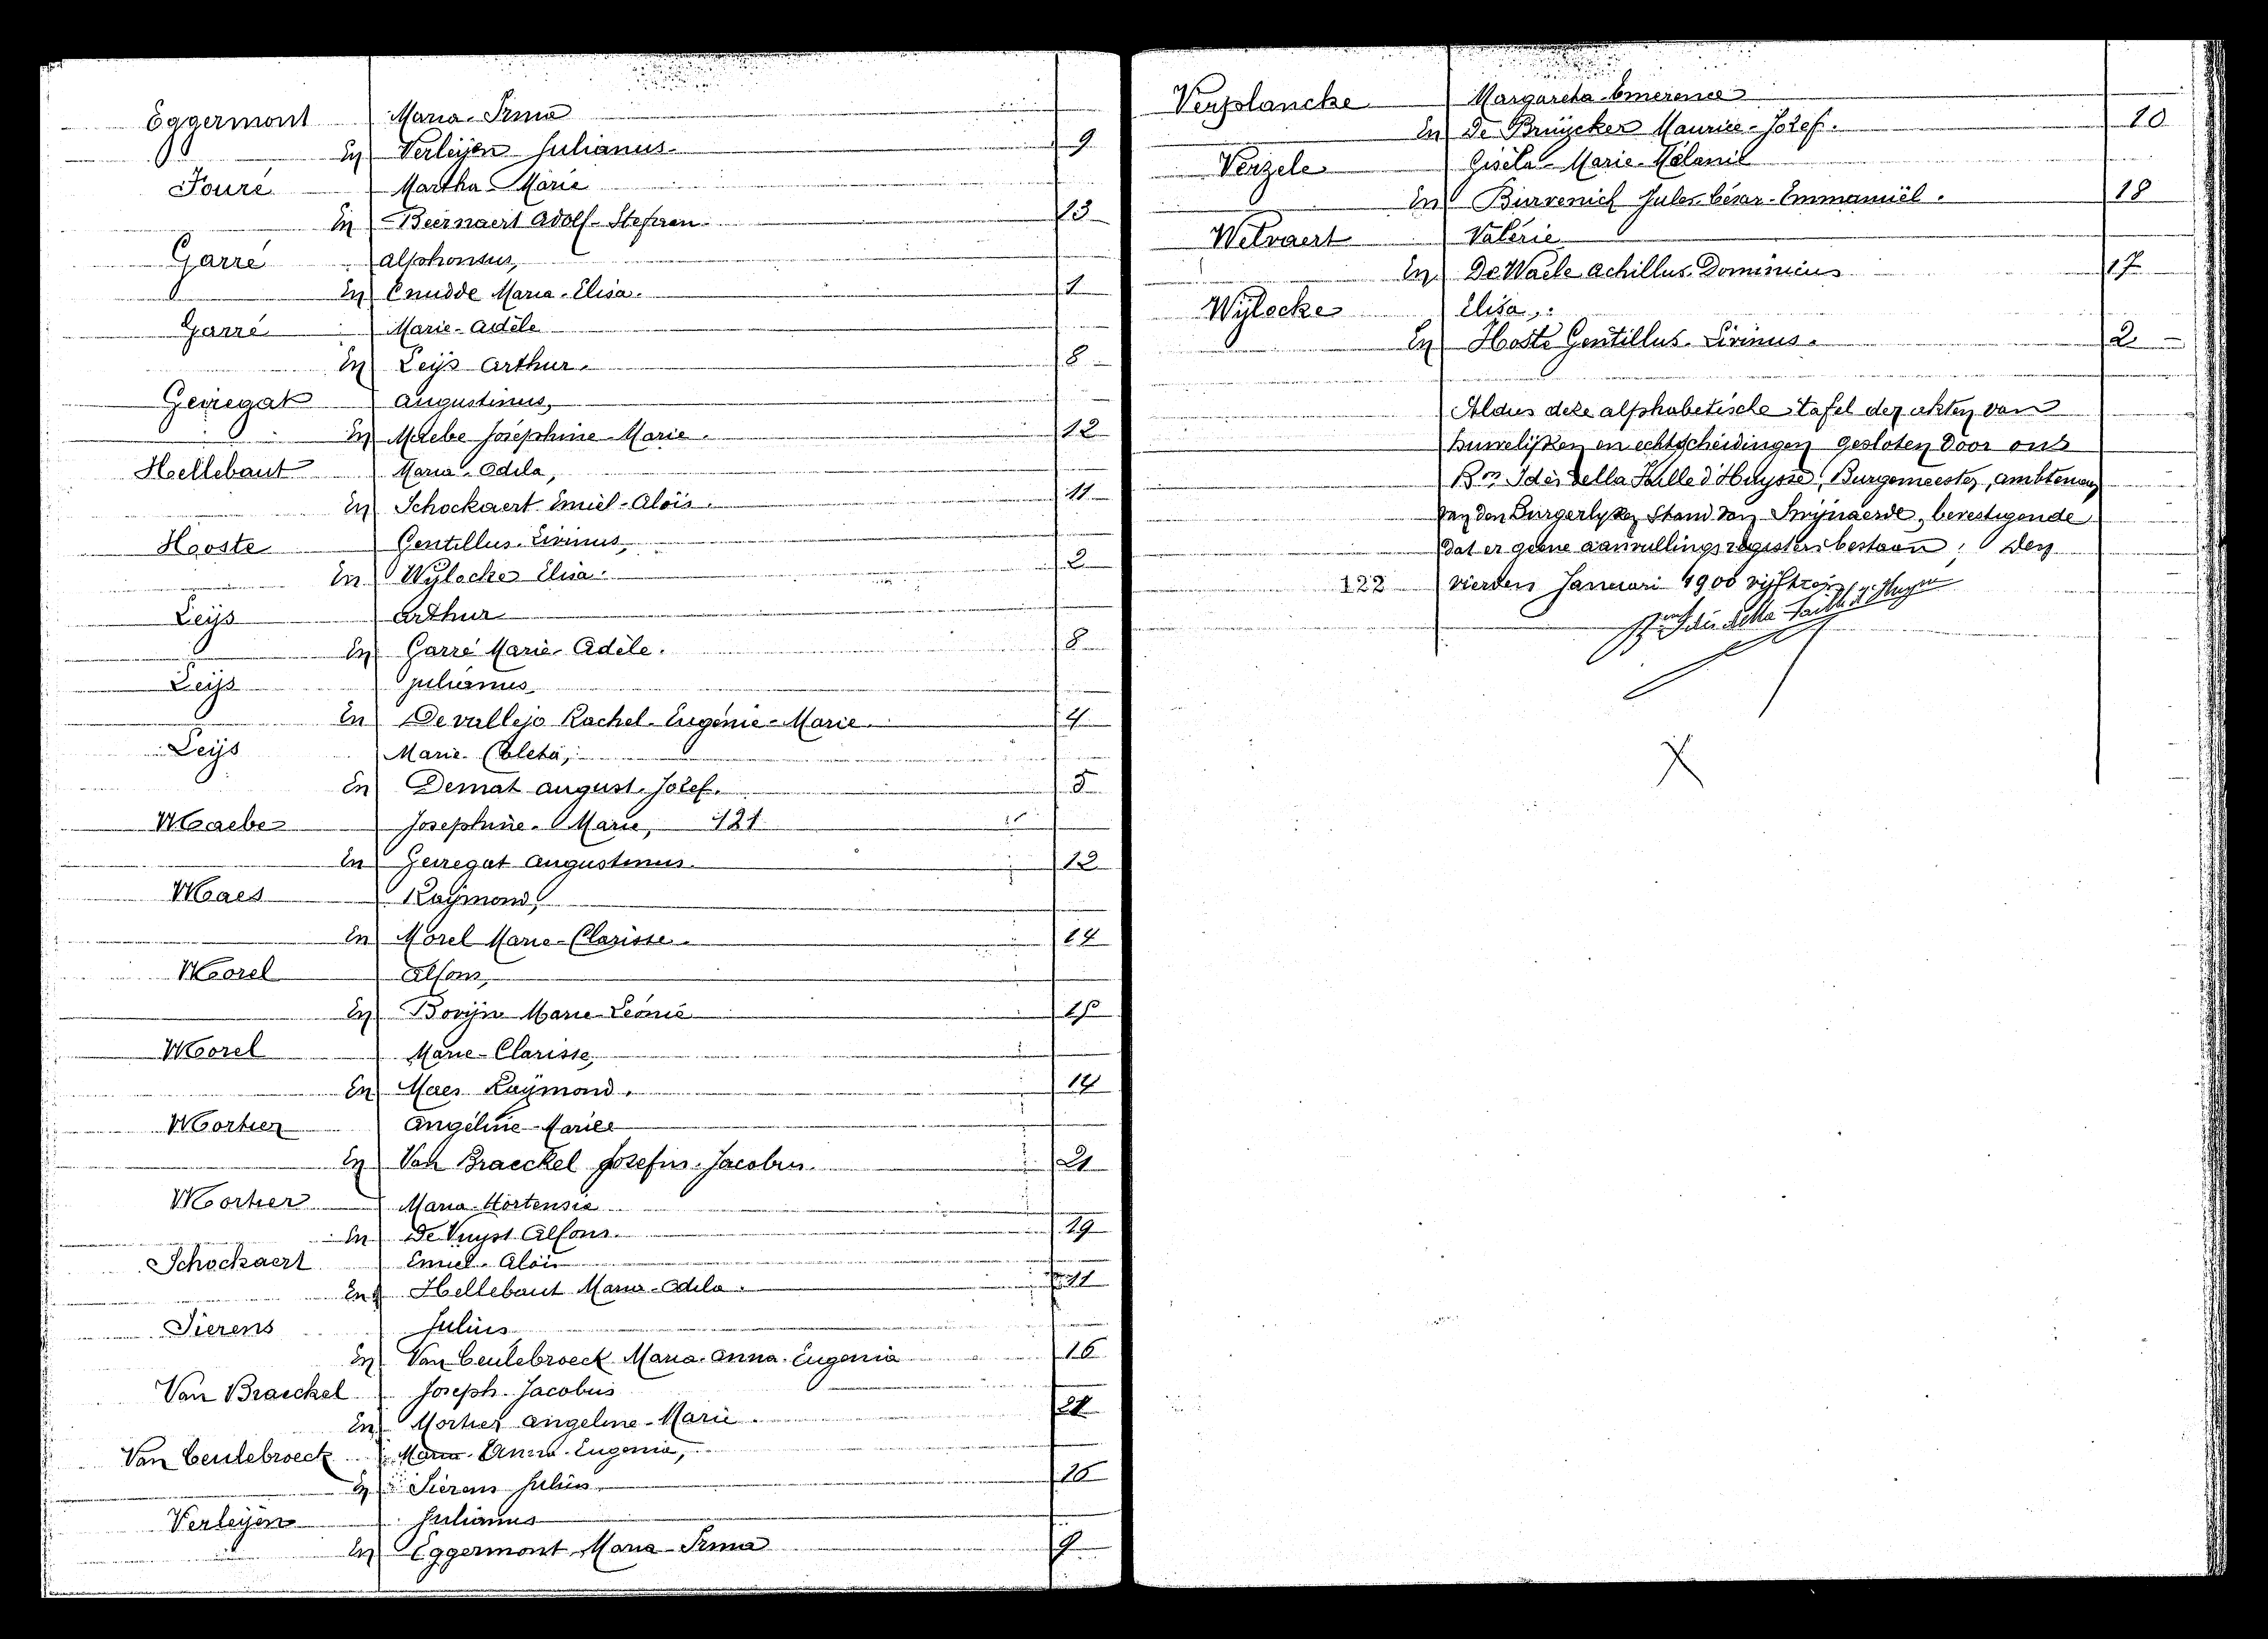 Eggermont Maria-Irma
En Verleijen Julianus 9
Fouré Martha-Marie
En Beernaert Adolf-Stefaan 13
Garré Alphonsus,
En Cnudde Maria-Elisa. 1
Garré Marie-Adèle
En Leijs Arthur. 8
Geiregat Augustinus,
En Maebe Josephine-Marie. 12
Hellebaut Maria-Odila,
En Schockaert Emiel-Aloïs. 11
Hooste Gentillus-Livinus,
En Wylocke Elisa. 2
Leijs Arthur
En Garré Marie-Adèle. 8
Leijs Julianus
En Devallejo Rachel-Eugenie-Marie. 4
Leijs Marie-Coleta,
En Demat August-Jozef. 5
Maebe Josephine-Marie, 121
En Geiregat Augustinus 12
Maes Raÿmond,
En Morel Marie-Clarisse. 14
Morel Alfons,
En Bovijn Marie-Léonie 15
Morel Marie-Clarisse,
En Maes Raÿmond. 14
Mortier Angéline-Marie
En Van Braeckel Josefus-Jacobus. 21
Mortier Maria-Hortensia
En De Vuyst Alfons. 19
Schockaert Emiel-Aloïs
En Hellebaut Maria-Odila. 11
Sierens Julius
En Van Ceulebroeck Maria-Anna-Eugenia 16
Van Braeckel Joseph-Jacobus
En Mortier Angeline-Marie. 21
Van Ceulebroeck Maria-Anna-Eugenia,
En Sierens Julius 16
Verleijen Julianus
En Eggermont Maria-Irma 9
Verplancke Margareta-Emerence
En De Bruÿcker Maurice-Jozef. 10
Verzele Gisèla-Marie-Mélanie
En Burvenich Jules-César-Emmanuël. 18
Welvaert Valérie
En De Waele Achillus-Dominicus 17
Wÿlocke Elisa,
En Hoste Gentillus-Livinus. 2
Aldus deze alphabetische tafel der akten van
huwelijken en echtscheidingen gesloten door ons
Bon Idès della Faille d'Huysse, Burgemeester, ambtenaar
van den Burgerlyken Stand van Swijnaerde, bevestigende
dat er geene aanvullingsregisters bestaan; Den
122 vierden Januari 1900 vijftien
Bon Idès della Faille d'Huysse